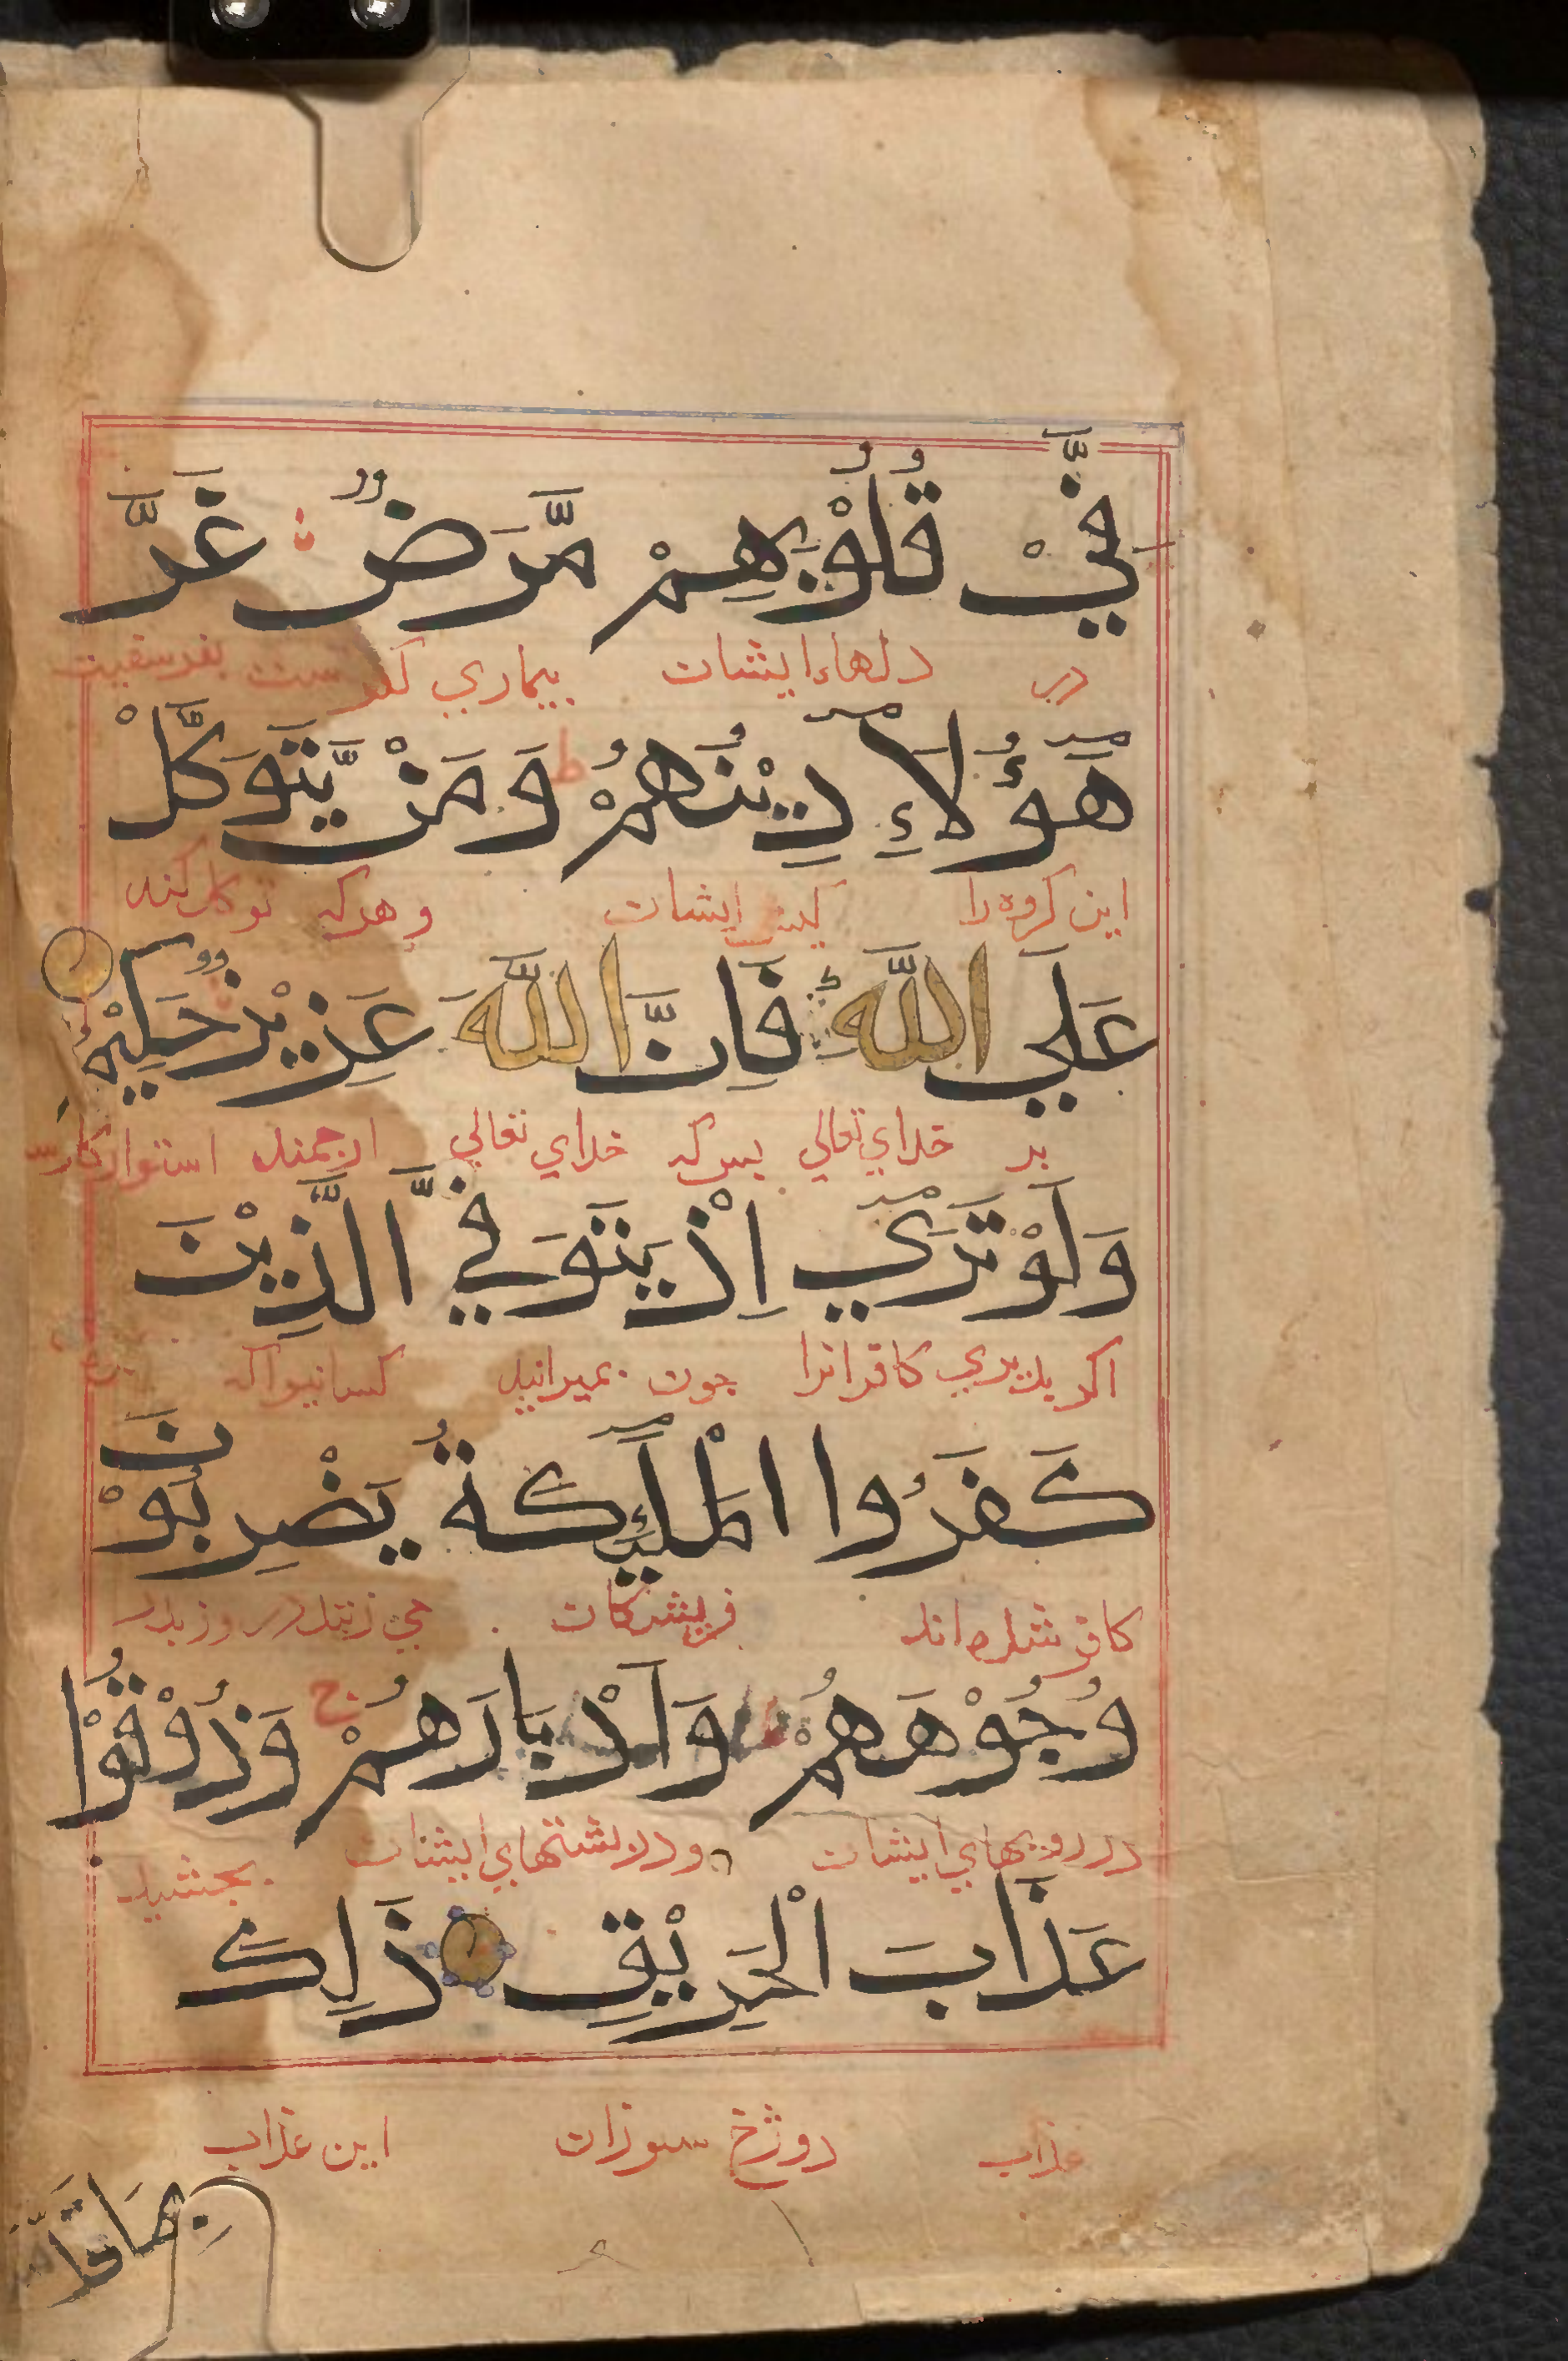 فِيْ قُلُوْبِهِمْ مَّرَضٌ غَرَّ
در دلهاء ايشان بيماري بفريفت
هَؤُلَاءِ دِيْنُهُمْ ط وَمَنْ يَّتَوَكَّلْ
اين كروه را ايشان و هركه توكل كند
عَلَي اللّٰهِ فَاِنَّ اللّٰهَ عَزِيْزٌ حَكِيْمٌ
بر خداي تعالي بس كه خداي تعالي ارجمند استوار كارست
وَلَوْ تَرَي اِذْ يَتَوَفَّي الَّذِيْنَ
اكر بديدي كافرانرا جون بميرانيد كسانيرا كه
كَفَرُوا الْمَلٰٓئِكَةُ يَضْرِبُوْنَ
كافر شده اند فريشتكان مي زنند در روز بدر
وُجُوْهَهُمْ وَاَدْبَارَهُمْ ج وَذُوْقُوْا
در رويهاي ايشان و در پشتهاي ايشان بجشيد
عَذَابَ الْحَرِيْقِ ذَلِكَ
عذاب دوزخ سوزان اين عذاب
بِمَا قَدَّ